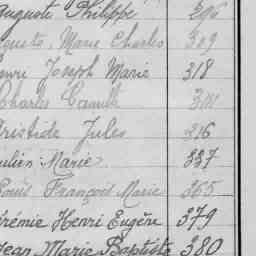 Auguste Philippe 296
Auguste, Marie Charles 309
Henri Joseph Marie 318
Charles Camille 301
Aristide Jules 216
Julien Marie 337
Louis François Marie 365
Jérémie Henri Eugène 379
Jean Marie Baptiste 380